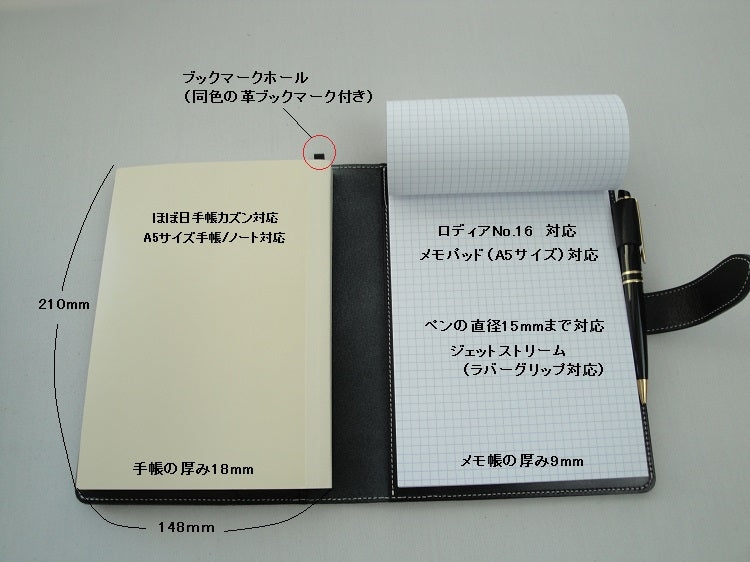 ブックマークホール
（同色の革ブックマーク付き）
ほぼ日手帳カズン対応
A5サイズ手帳/ノート対応
210mm
手帳の厚み18mm
148mm
ロディアNo.16　対応
メモパッド（A5サイズ）対応
ペンの直径15mmまで対応
ジェットストリーム
（ラバーグリップ対応）
メモ帳の厚み9mm